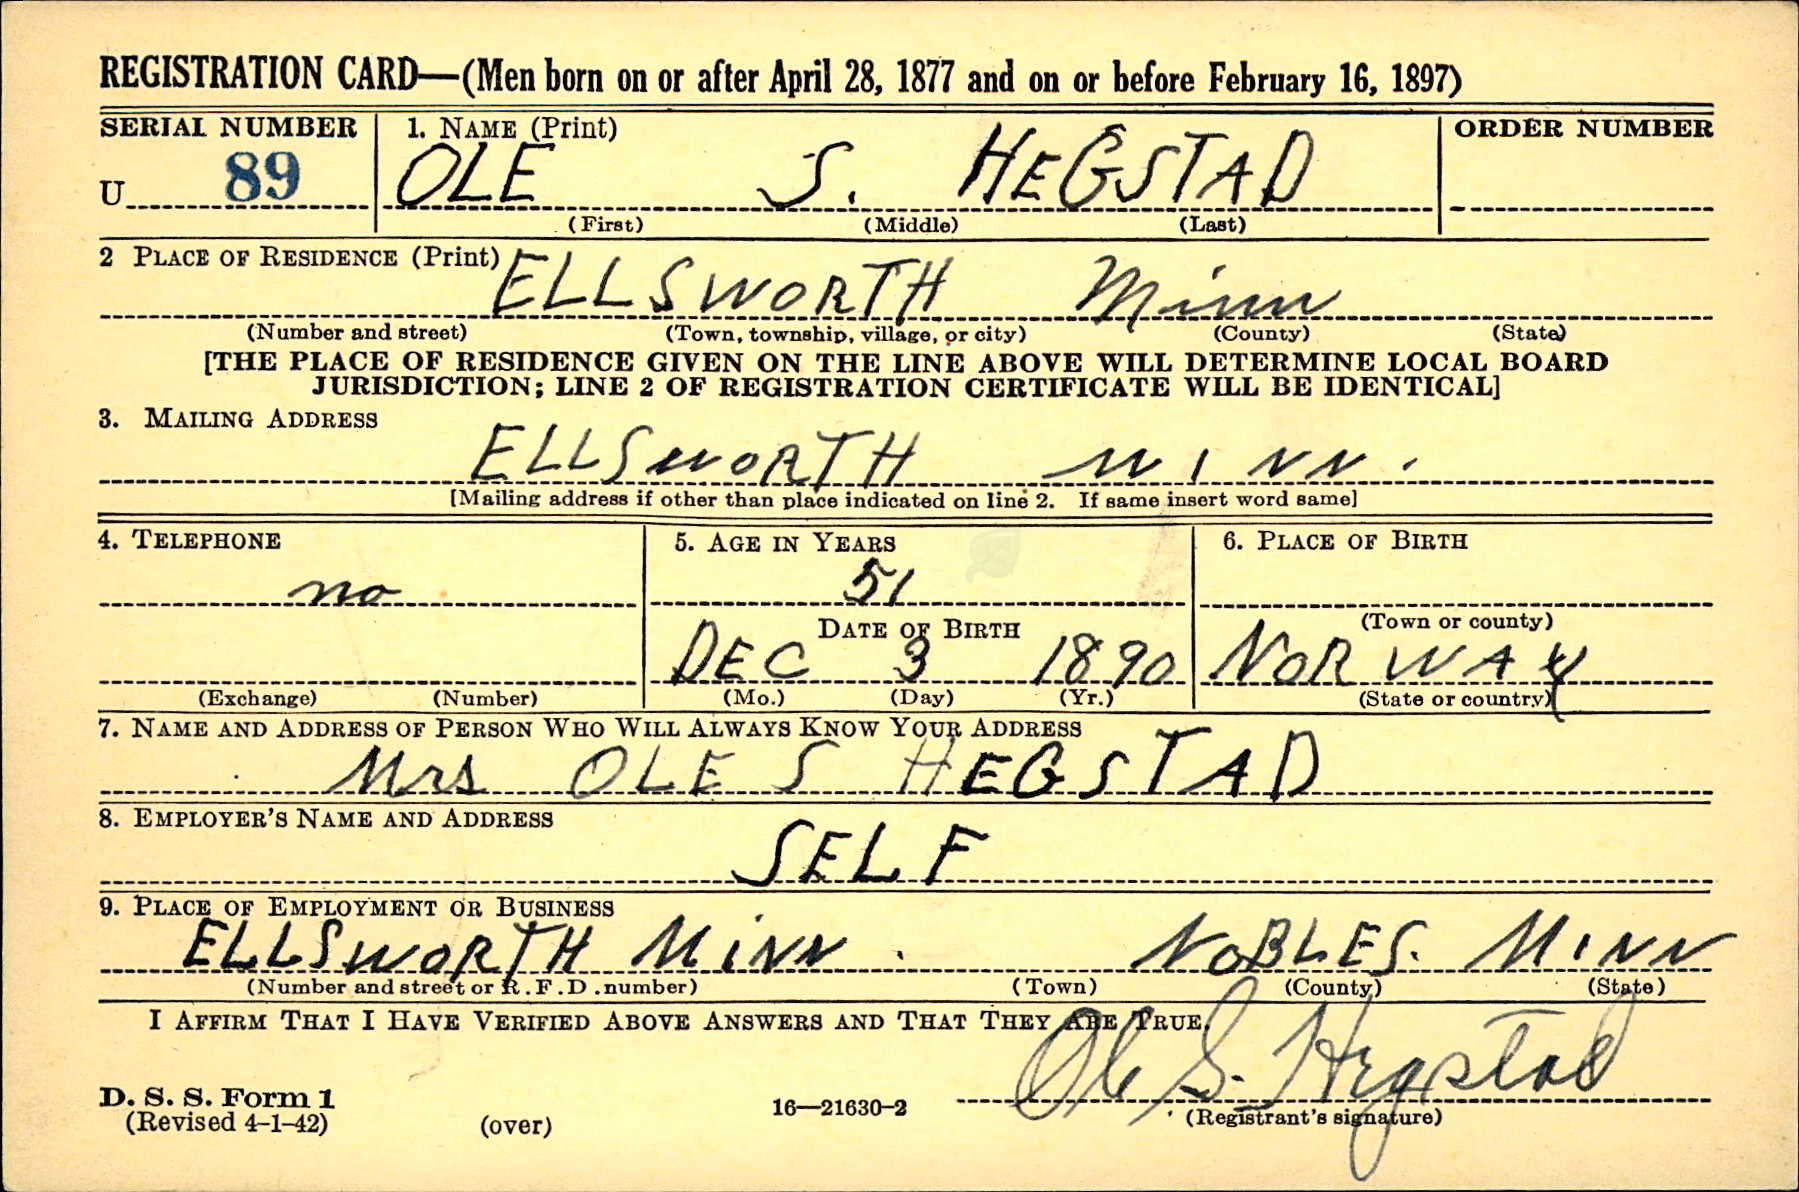 REGISTRATION CARD—(Men born on or after April 28, 1877 and on or before February 16, 1897)
SERIAL NUMBER 1. NAME (Print) ORDER NUMBER
U 89 OLE S. HEGSTAD
(First) (Middle) (Last)
2 PLACE OF RESIDENCE (Print)
ELLSWORTH Minn
(Number and street) (Town, township, village, or city) (County) (State)
[THE PLACE OF RESIDENCE GIVEN ON THE LINE ABOVE WILL DETERMINE LOCAL BOARD
JURISDICTION; LINE 2 OF REGISTRATION CERTIFICATE WILL BE IDENTICAL]
3. MAILING ADDRESS
ELLSWORTH MINN.
[Mailing address if other than place indicated on line 2. If same insert word same]
4. TELEPHONE 5. AGE IN YEARS 6. PLACE OF BIRTH
no 51
DATE OF BIRTH (Town or county)
DEC 3 1890 NORWAY
(Exchange) (Number) (Mo.) (Day) (Yr.) (State or country)
7. NAME AND ADDRESS OF PERSON WHO WILL ALWAYS KNOW YOUR ADDRESS
Mrs OLE S HEGSTAD
8. EMPLOYER'S NAME AND ADDRESS
SELF
9. PLACE OF EMPLOYMENT OR BUSINESS
ELLSWORTH MINN. NOBLES. MINN
(Number and street or R.F.D. number) (Town) (County) (State)
I AFFIRM THAT I HAVE VERIFIED ABOVE ANSWERS AND THAT THEY ARE TRUE.
Ole S. Hegstad
D. S. S. Form 1
(Revised 4-1-42) (over) 16—21630-2 (Registrant's signature)